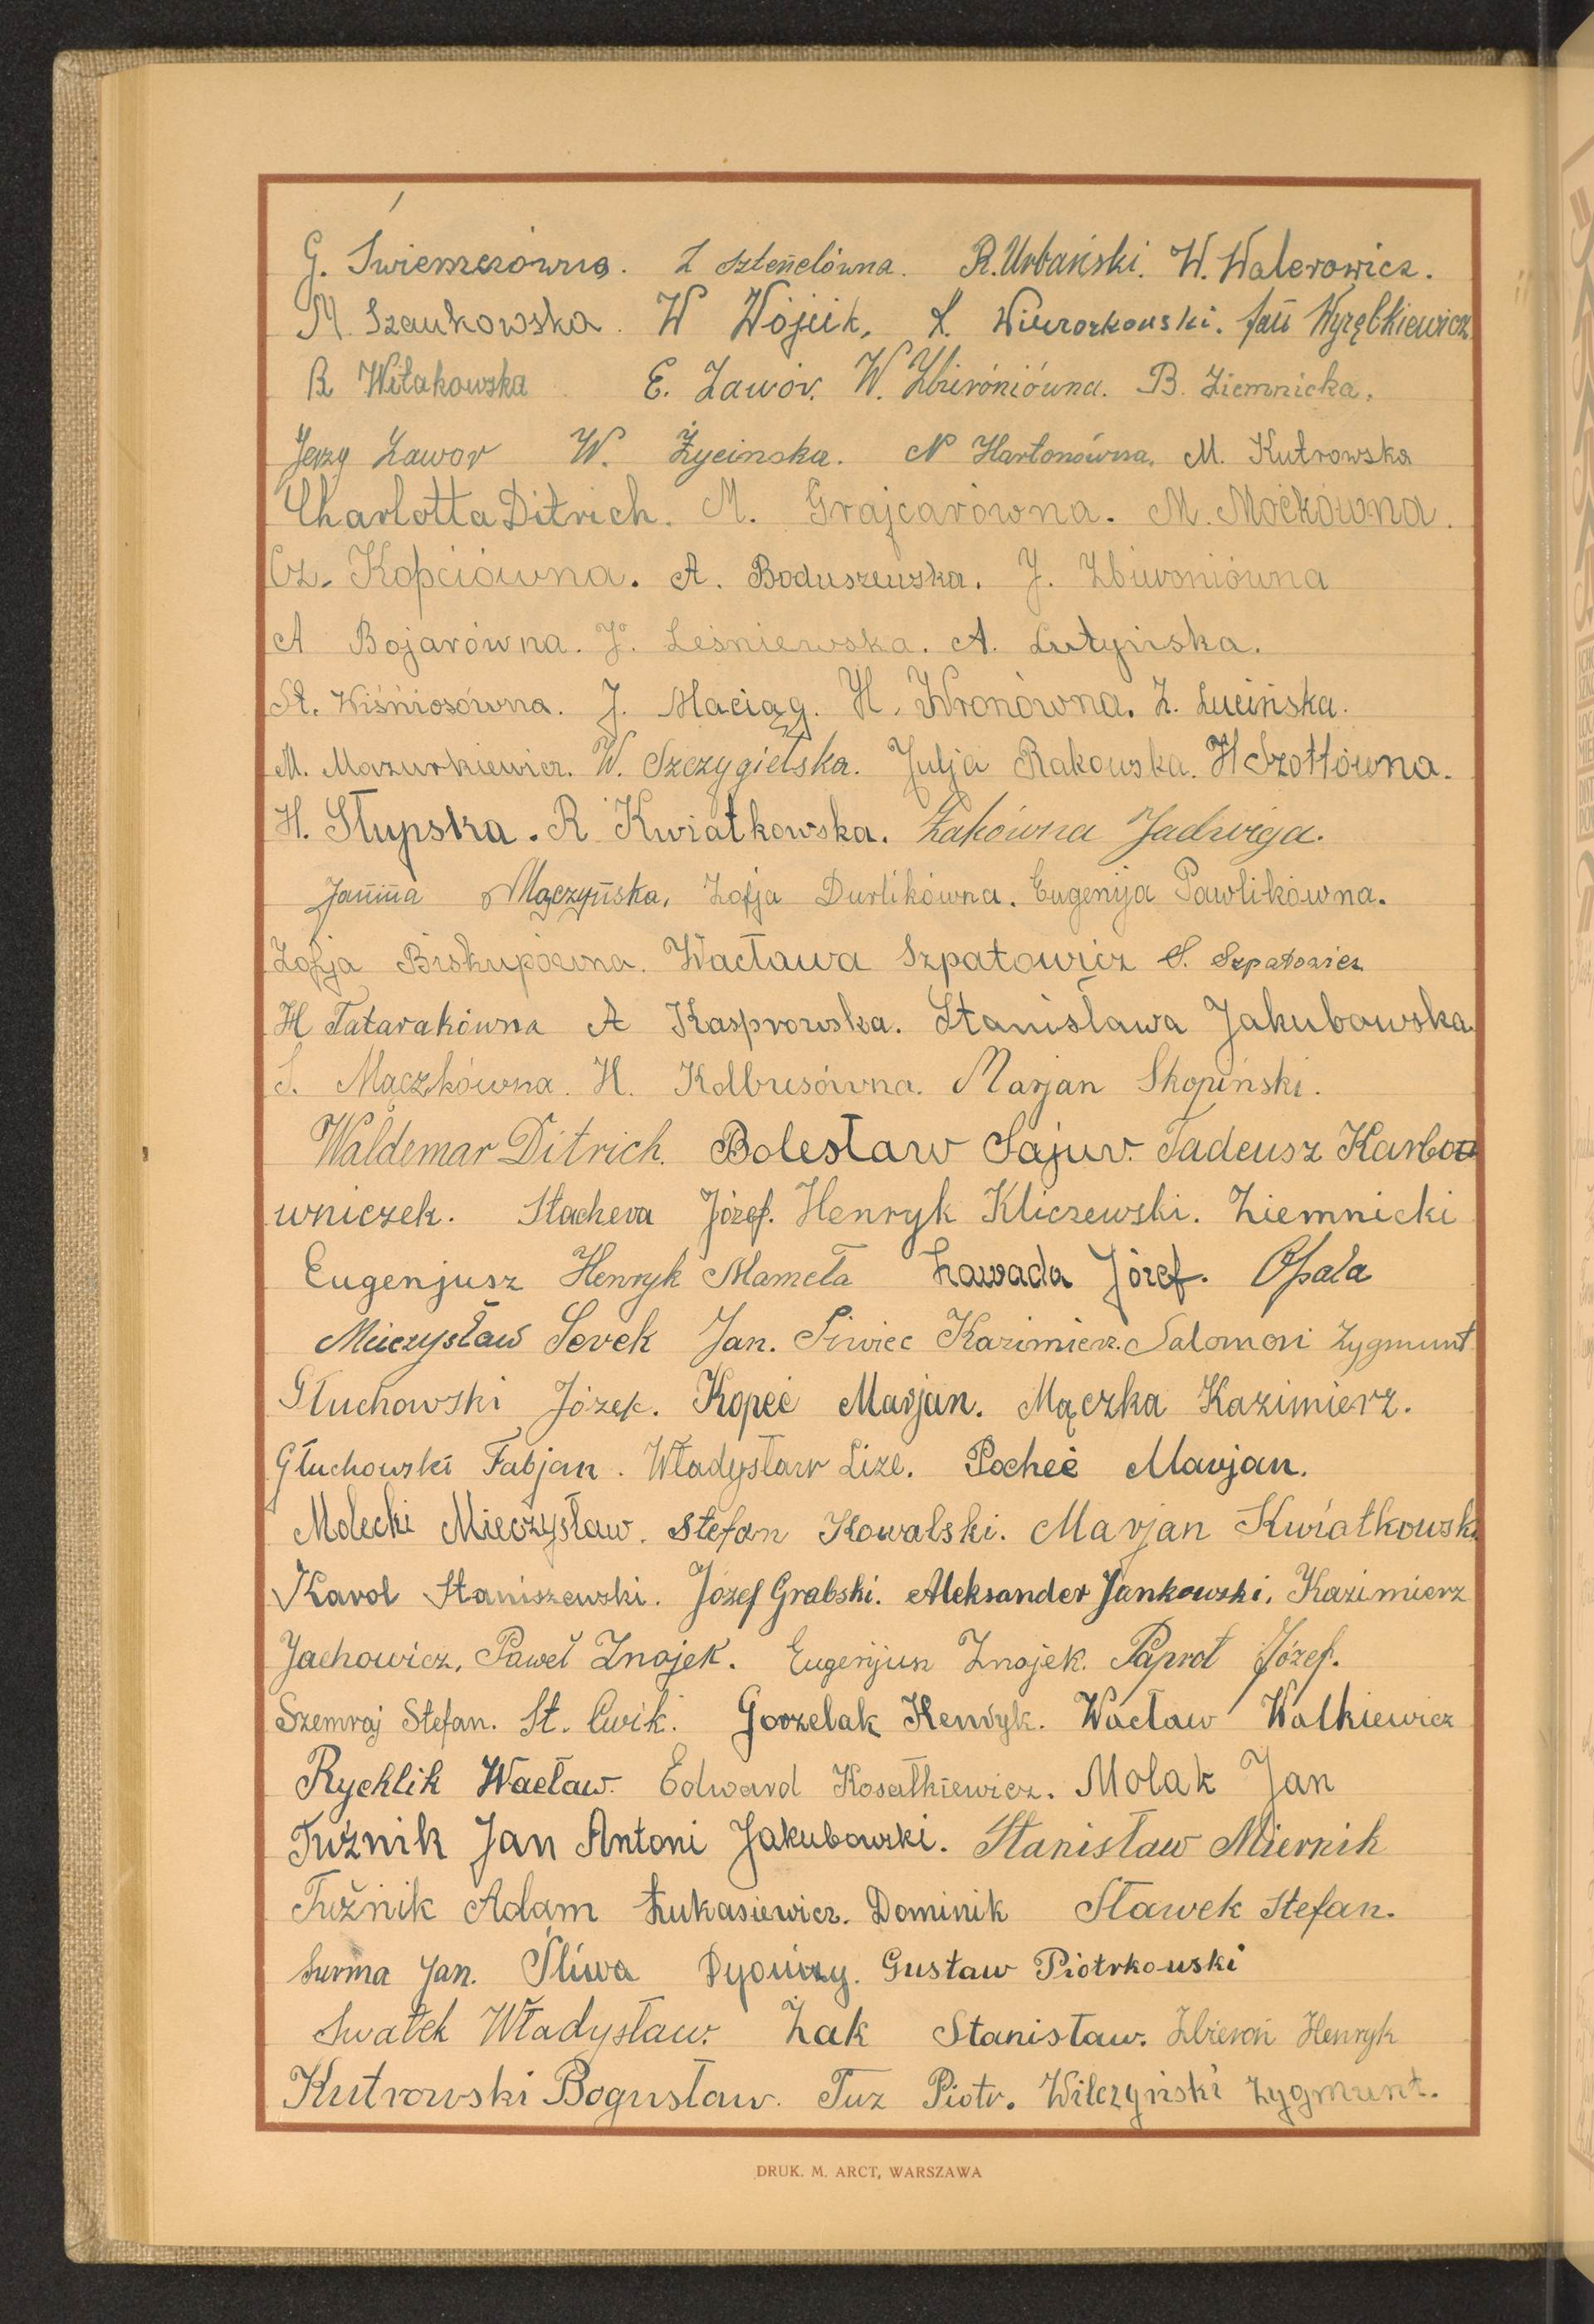 G. Świerszczówna. Z Sztenelówna. R. Urbański. W. Walerowicz.
M. Szaukowska. W Wójcik, L. Wieczorkowski. Jan Wyrębkiewicz
R Witakowska E. Zawór. W. Zbiróniówna. B. Ziemnicka.
Jerzy Zawor W. Życinska. N Hartonówna. M. Kutrowska
Charlotta Ditrich. M. Grajcarówna. M. Moćkówna.
Cz. Kopciówna. A. Boduszewska. J. Zbironiówna
A Bojarówna. J. Leśniewska. A. Lutyńska.
St. Wiśniosówna. J. Maciąg. H. Wronówna. Z. Lucińska.
M. Mazurkiewicz. W. Szczygielska. Julja Rakowska. H Szottówna.
H. Słupska. R Kwiatkowska. Żakówna Jadwiga.
Janina Mączyńska, Zofja Durlikówna. Eugenija Pawlikówna.
Zofja Biskupówna. Wacława Szpatowicz S. Szpatowicz
H Tatarakówna A Kasprowska. Stanisława Jakubowska
S. Mączkówna. H. Kolbusówna. Marjan Skopiński.
Waldemar Ditrich. Bolesław Sajur. Tadeusz Karbo
wniczek. Stachera Józef. Henryk Kliczewski. Ziemnicki
Eugenjusz Henryk Mameła Zawada Józef. Opala
Mieczysław Serek Jan. Siwiec Kazimierz. Salomon Zygmunt
Głuchowski Józef. Kopeć Marjan. Mączka Kazimierz.
Głuchowski Fabjan. Władysław Lize. Pocheć Marjan.
Molecki Mieczysław. Stefan Kowalski. Marjan Kwiatkowski
Karol Staniszewski. Józef Grabski. Aleksander Jankowski, Kazimierz
Jachowicz, Paweł Znojek. Eugenjusz Znojek. Paprot Józef.
Szemraj Stefan. St. Ćwik. Gorzelak Henryk. Wacław Walkiewicz
Rychlik Wacław. Edward Kosałkiewicz. Molak Jan
Tuźnik Jan Antoni Jakubowski. Stanisław Miernik
Tuźnik Adam Łukasiewicz. Dominik Sławek Stefan.
Surma Jan. Śliwa Dyonizy. Gustaw Piotrkowski
Swatek Władysław. Żak Stanisław. Zbiroń Henryk
Kutrowski Bogusław. Tuz Piotr. Wilczyński Zygmunt.
DRUK. M. ARCT, WARSZAWA